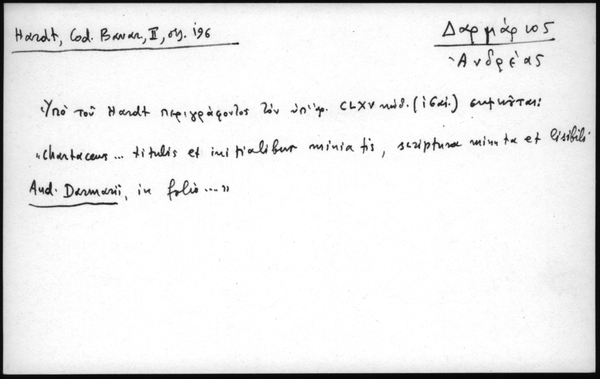 Hardt, Cod. Bavar, II, σλ. 196
Δαρμάριος
Ἀνδρέας
Ὑπὸ τοῦ Hardt περιγράφοντος τὸν ὑπ' ἀρ. CLXV κώδ. (ἰδαί.) σημειοῦται:
"Chartaceus ... titulis et initialibus miniatis, scriptura minuta et lisibili
And. Darmarii, in folio ..."